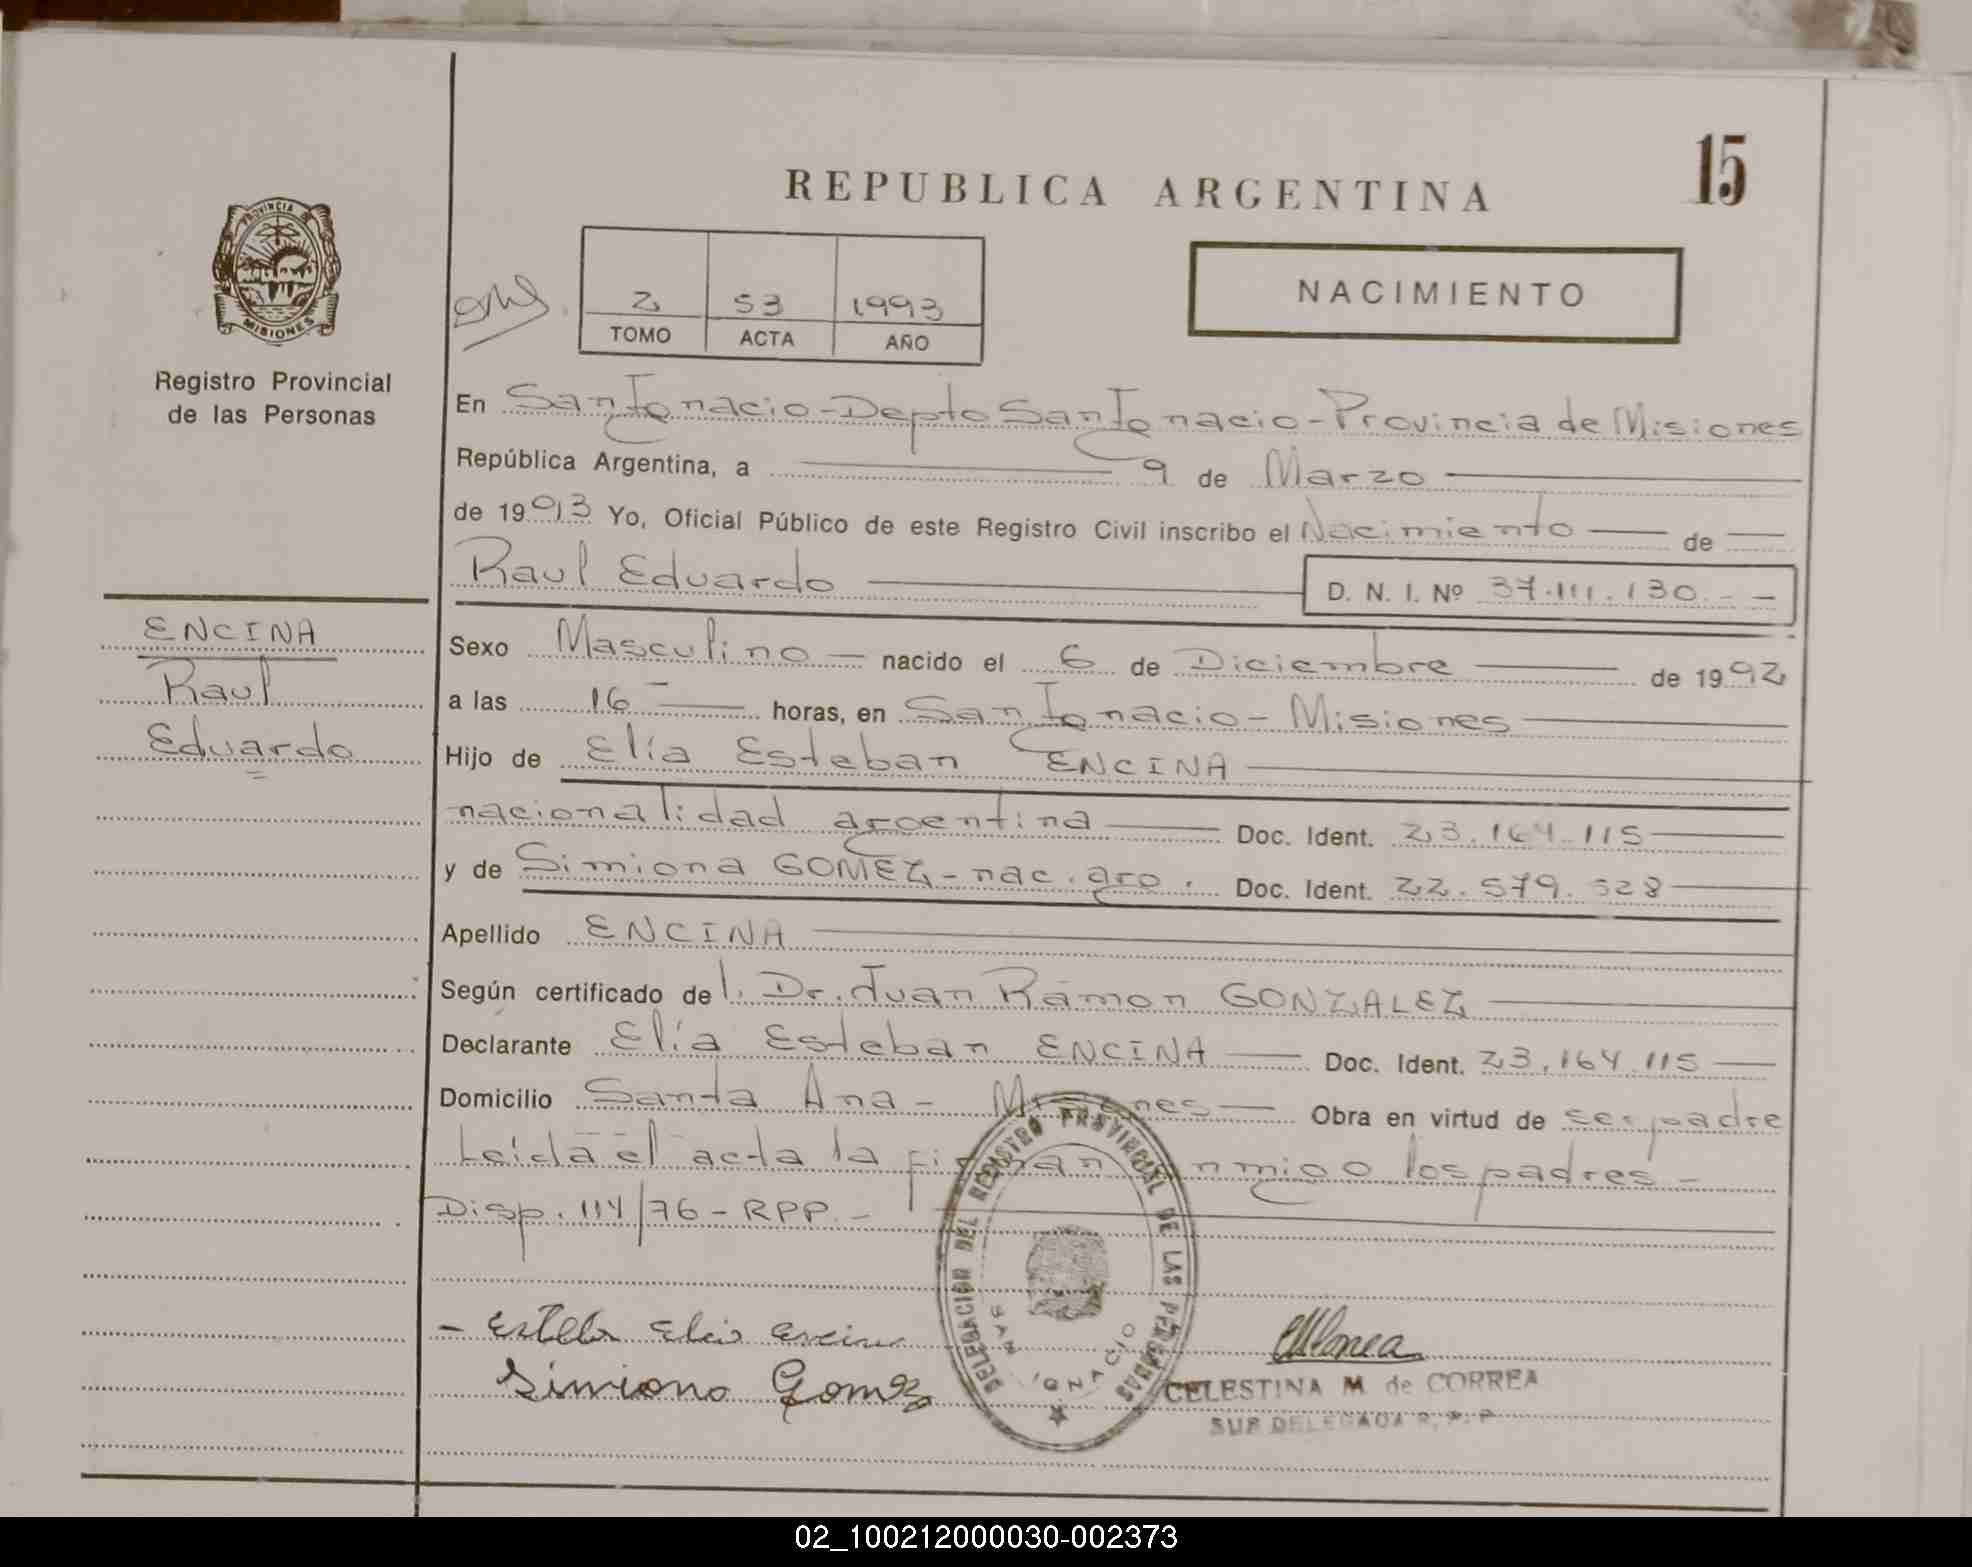 15
REPUBLICA ARGENTINA
PROVINCIA DE
MISIONES
Registro Provincial
de las Personas
2 53 1993
TOMO ACTA AÑO
NACIMIENTO
En San Ignacio - Depto San Ignacio - Provincia de Misiones
República Argentina, a 9 de Marzo
de 1993 Yo, Oficial Público de este Registro Civil inscribo el Nacimiento de
Raul Eduardo D. N. I. Nº 37.111.130.--
ENCINA
Raul
Eduardo
Sexo Masculino - nacido el 6 de Diciembre de 1992
a las 16 horas, en San Ignacio - Misiones
Hijo de Elía Esteban ENCINA
nacionalidad argentina Doc. Ident. 23.164.115
y de Simiona GOMEZ - nac. arg. Doc. Ident. 22.579.528
Apellido ENCINA
Según certificado del. Dr. Juan Ramon GONZALEZ
Declarante Elía Esteban ENCINA Doc. Ident. 23.164.115
Domicilio Santa Ana - Misiones Obra en virtud de ser padre
Leida el acta la firman conmigo los padres -
Disp. 114/76 - RPP. -
DELEGACION DEL REGISTRO PROVINCIAL DE LAS PERSONAS
SAN IGNACIO
- Esteban Elia Encina
Simiona Gomez
CELESTINA M. de CORREA
SUB DELEGADA R. P. P.
02_100212000030-002373